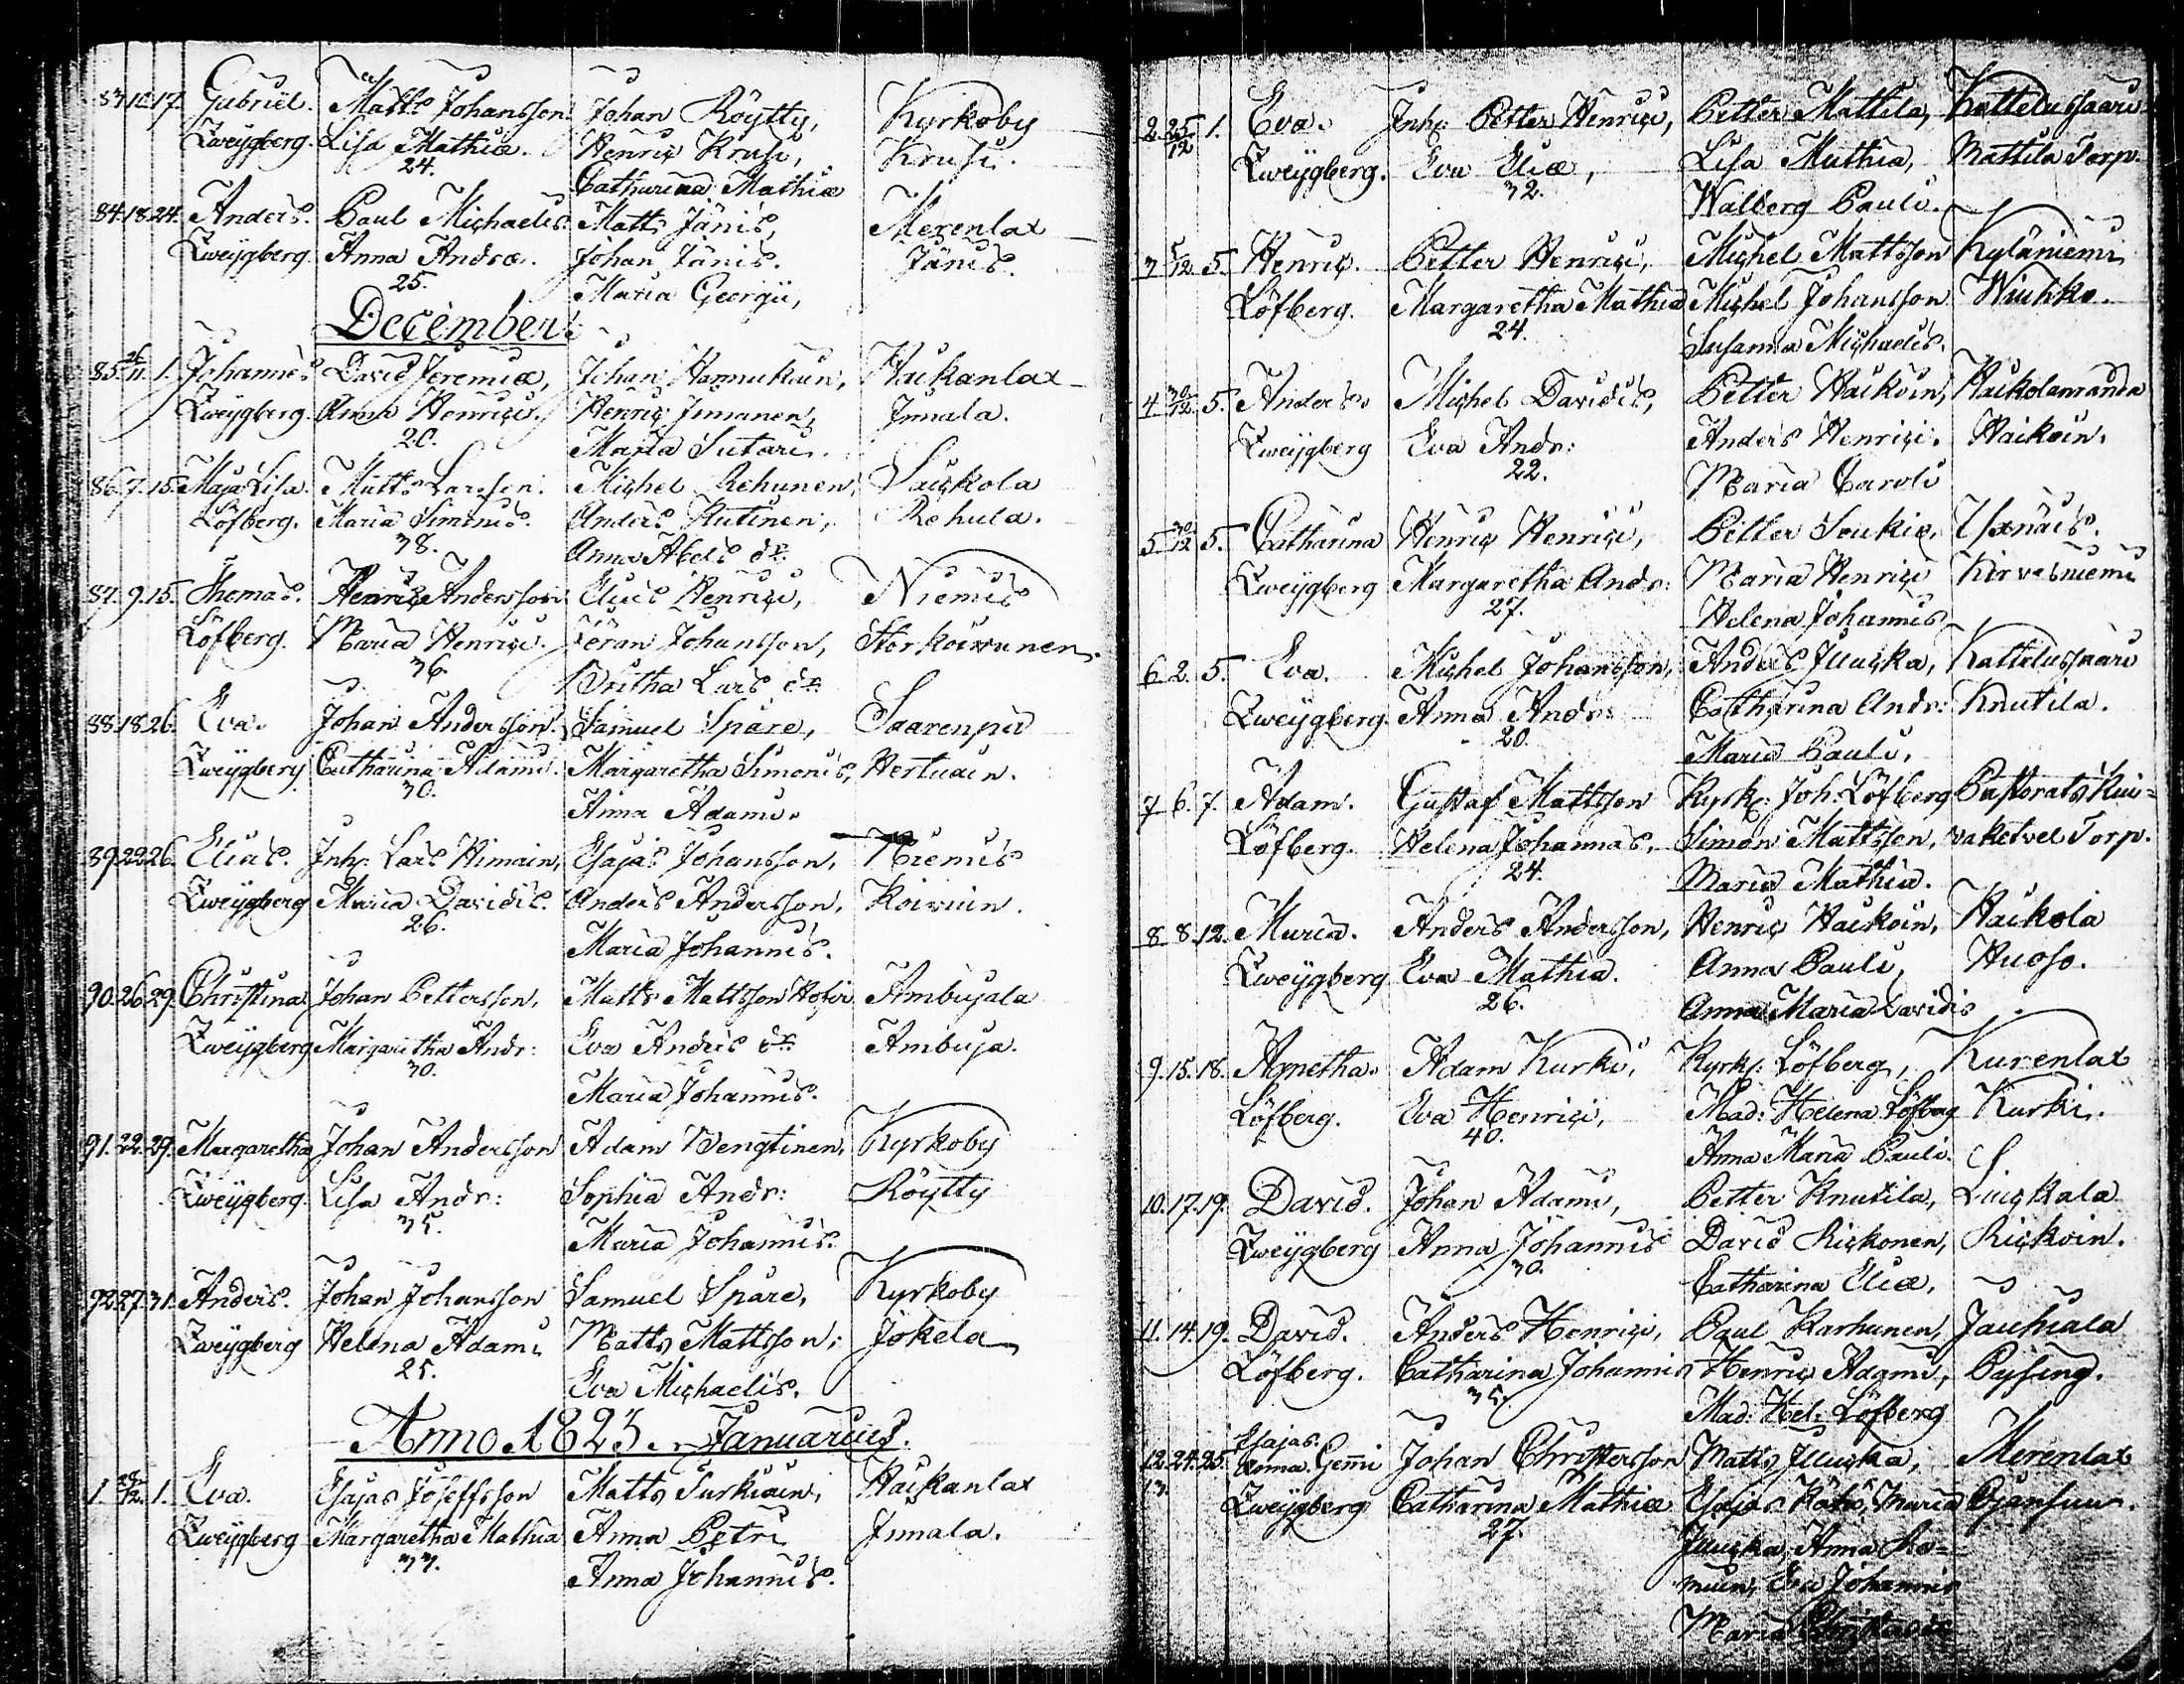 83. 10. 17. Gabriel. Matts Johansson. Johan Röytty, Kyrkoby
Zweygberg. Lisa Mathiæ. Henric Krusi, Krusi.
24. Catharina Mathiæ
84. 18. 24. Anders. Paul Michaelis. Matts Jänis, Merenlax
Zweygberg. Anna Andræ. Johan Jänis. Jänis.
25. Maria Georgii,
December.
85. 26/11. 1. Johannes David Jeremiæ, Johan Hannukain, Haickanlax
Zweygberg. Anna Henrici. Henric Immanen, Immala.
20. Maria Sutari.
86. 7. 15. Maja Lisa. Matts Larsson. Michel Rehunen, Saickola
Löfberg. Maria Simonis. Anders Kutinen, Rehula.
38. Anna Abels dr.
87. 9. 15. Thomas. Henric Andersson Elias Henrici, Niemis
Löfberg. Maria Henrici. Göran Johansson, Storkoivunen.
36. Britha Lars dr.
88. 18. 26. Eva. Johan Andersson. Samuel Spåre, Saarenpä
Zweygberg Catharina Adami. Margaretha Simonis, Hertuain.
30. Anna Adami.
89. 22. 26. Elias. Inh: Lars Himain, Esajas Johansson, Niemis
Zweygberg Maria Davidis. Anders Andersson, Koivuin.
26. Maria Johannis.
90. 26. 29. Christina Johan Pettersson, Matts Mattsson Ambujala
Zweygberg Margaretha Andr: Eva Anders dr. Ambuja.
30. Maria Johannis.
91. 22. 29. Margaretha Johan Andersson Adam Bengtinen, Kyrkoby
Zweygberg. Lisa Andr: Sophia Andr: Röytty
35. Maria Johannis.
92. 27. 31. Anders. Johan Johansson Samuel Spåre, Kyrkoby
Zweygberg Helena Adami Matts Mattsson, Jokela
25. Eva Michaelis.
Anno 1823. Januarius.
1. 28/12. 1. Eva. Esajas Joseffsson Matts Surkiain, Haickanlax
Zweygberg Margaretha Mathiæ Anna Petri Immala.
33. Anna Johannis.
2. 25/12 1. Eva. Inh: Petter Henrici, Petter Mattila, Kattelussaari
Zweygberg. Eva Eliæ, Lisa Mathiæ, Mattila Torp.
32. Walberg Pauli.
3 5/12. 5. Henric. Petter Henrici, Michel Mattsson Kyläniemi
Löfberg. Margaretha Mathiæ Michel Johansson Wiuhko.
24. Susanna Michaelis.
4 30/12. 5. Anders. Michel Davidis, Petter Haikoin, Haikolanranda
Zweygberg Eva Andr: Anders Henrici. Haikoin.
22. Maria Caroli
5 30/12 5. Catharina Henric Henrici, Petter Soukia, Usænais.
Zweygberg Margaretha Andr: Maria Henrici Kirvesniemi
27. Helena Johannis
6. 2. 5. Eva. Michel Johansson, Anders Illuska, Kattelussaari
Zweygberg. Anna Andr: Catharina Andr: Knutila.
20. Maria Pauli,
7. 6. 7. Adam. Gustaf Mattsson Kyrkh: Joh: Löfberg Pastorats Kui-
Löfberg. Helena Johannis. Simon Mattsson, vaketvel Torp.
24. Maria Mathiæ.
8. 8. 12. Maria. Anders Andersson, Henric Haikoin, Haikola
Zweygberg Eva Mathiæ. Anna Pauli, Huoso.
26. Anna Maria Davidis
9. 15. 18. Agnetha. Adam Kurki, Kyrkh: Löfberg, Kurenlax
Löfberg. Eva Henrici, Mad: Helena Löfberg Kurki.
40. Anna Maria Pauli.
10. 17. 19. David. Johan Adami, Petter Knutila, Luickala
Zweygberg Anna Johannis David Rickonen, Rickoin.
30. Catharina Eliæ,
11. 14. 19. David. Anders Henrici, Paul Karhunen, Jauhiala
Löfberg. Catharina Johannis Henric Adami, Pysing.
35. Mad: Hel: Löfberg
12. 24. 25. Esajas. Anna. Gemi Johan Christersson Matts Illuska, Merenlax
13. Zweygberg Catharina Mathiæ Esajas Maria
27. Illuska, Anna Ro=
muin, Eva Johannis
Maria